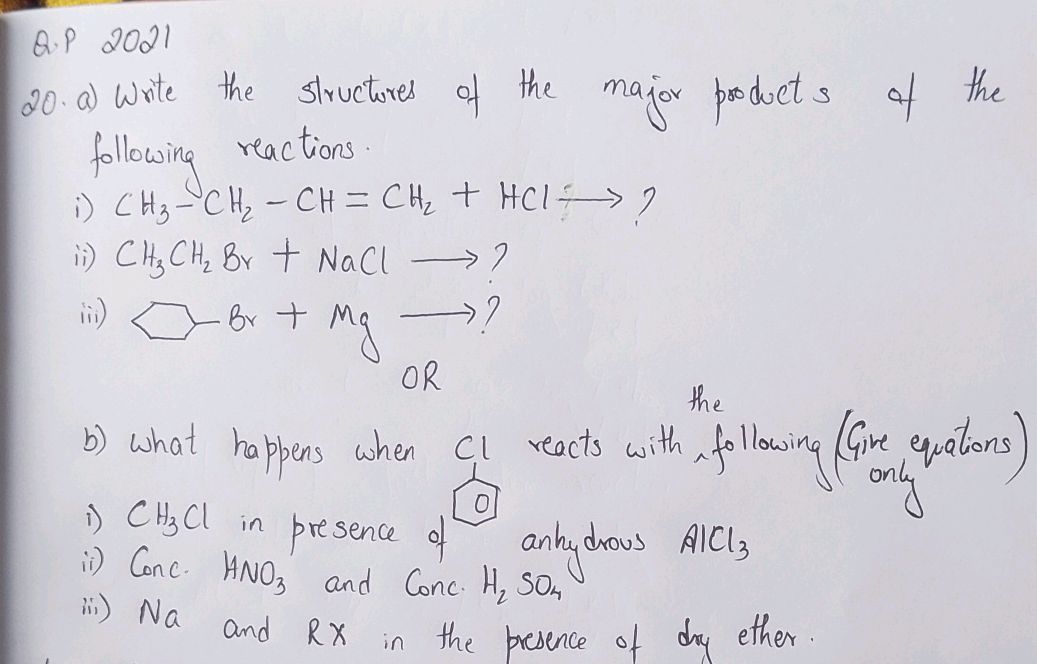 Q.P 2021
20. a) Write the structures of the major products of the
following reactions.
i) CH₃-CH₂-CH=CH₂ + HCl → ?
ii) CH₃CH₂Br + NaCl → ?
iii) Br + Mg → ?
OR
b) what happens when Cl reacts with the following (Give equations only)
i) CH₃Cl in presence of anhydrous AlCl₃
ii) Conc. HNO₃ and Conc. H₂SO₄
iii) Na and RX in the presence of dry ether.